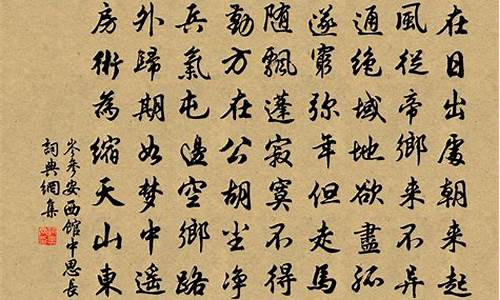 在日出處朝來起
風從帝鄉來不异
通絶域地欲盡孤
遂窮弥年但走馬
随飄蓬寂寞不得
勤方在公胡尘净
兵氣屯邊空鄉路
外歸期如梦中遥
房術為縮天山東
岑参安西館中思長
詞典網集